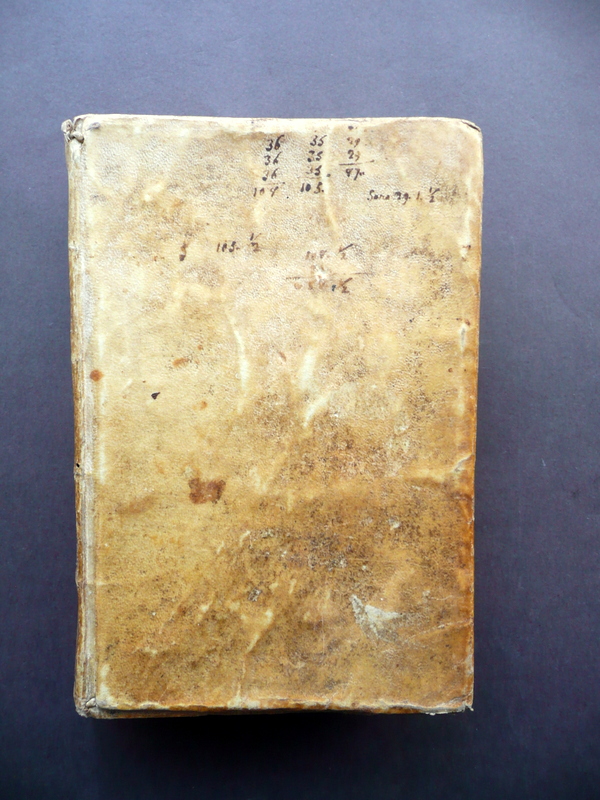 36 35 29
36 35 29
36 35. 87.
108. 105.
Sono 29. 1. ½
105. ½
108. ½